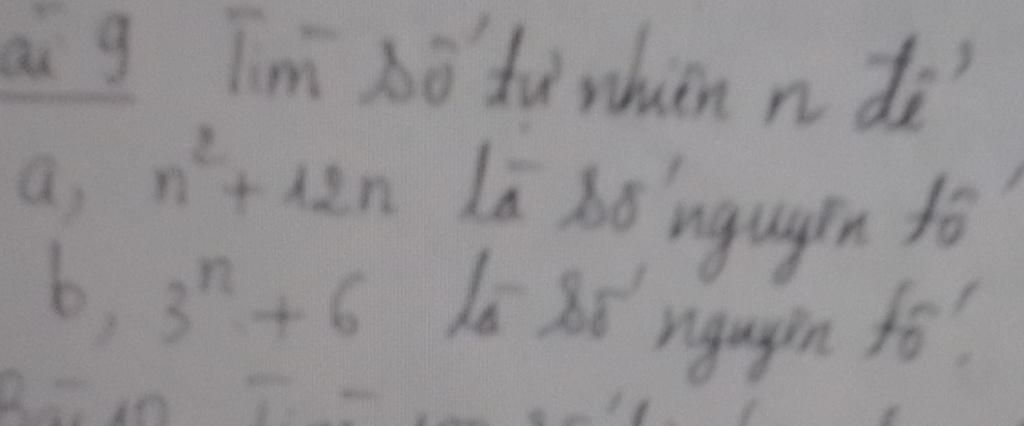 ài 9 Tìm số tự nhiên n để
a, n² + 12n là số nguyên tố
b, 3ⁿ + 6 là số nguyên tố.